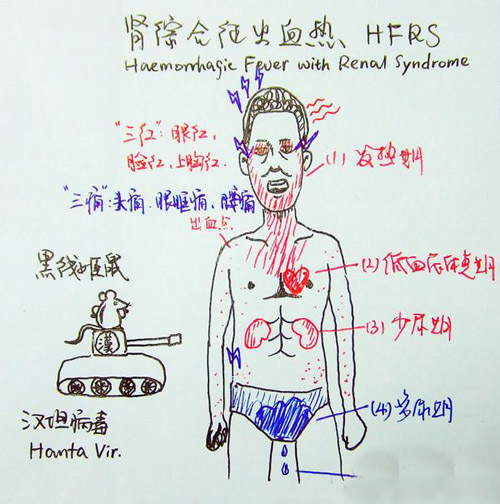 肾综合征出血热 HFRS
Haemorrhagic Fever with Renal Syndrome
"三红": 眼红,
脸红, 上胸红.
(1) 发热期
"三痛": 头痛. 眼眶痛, 腰痛
出血点
黑线姬鼠
漢
(2) 低血压休克期
(3) 少尿期
(4) 多尿期
汉坦病毒
Hanta Vir.